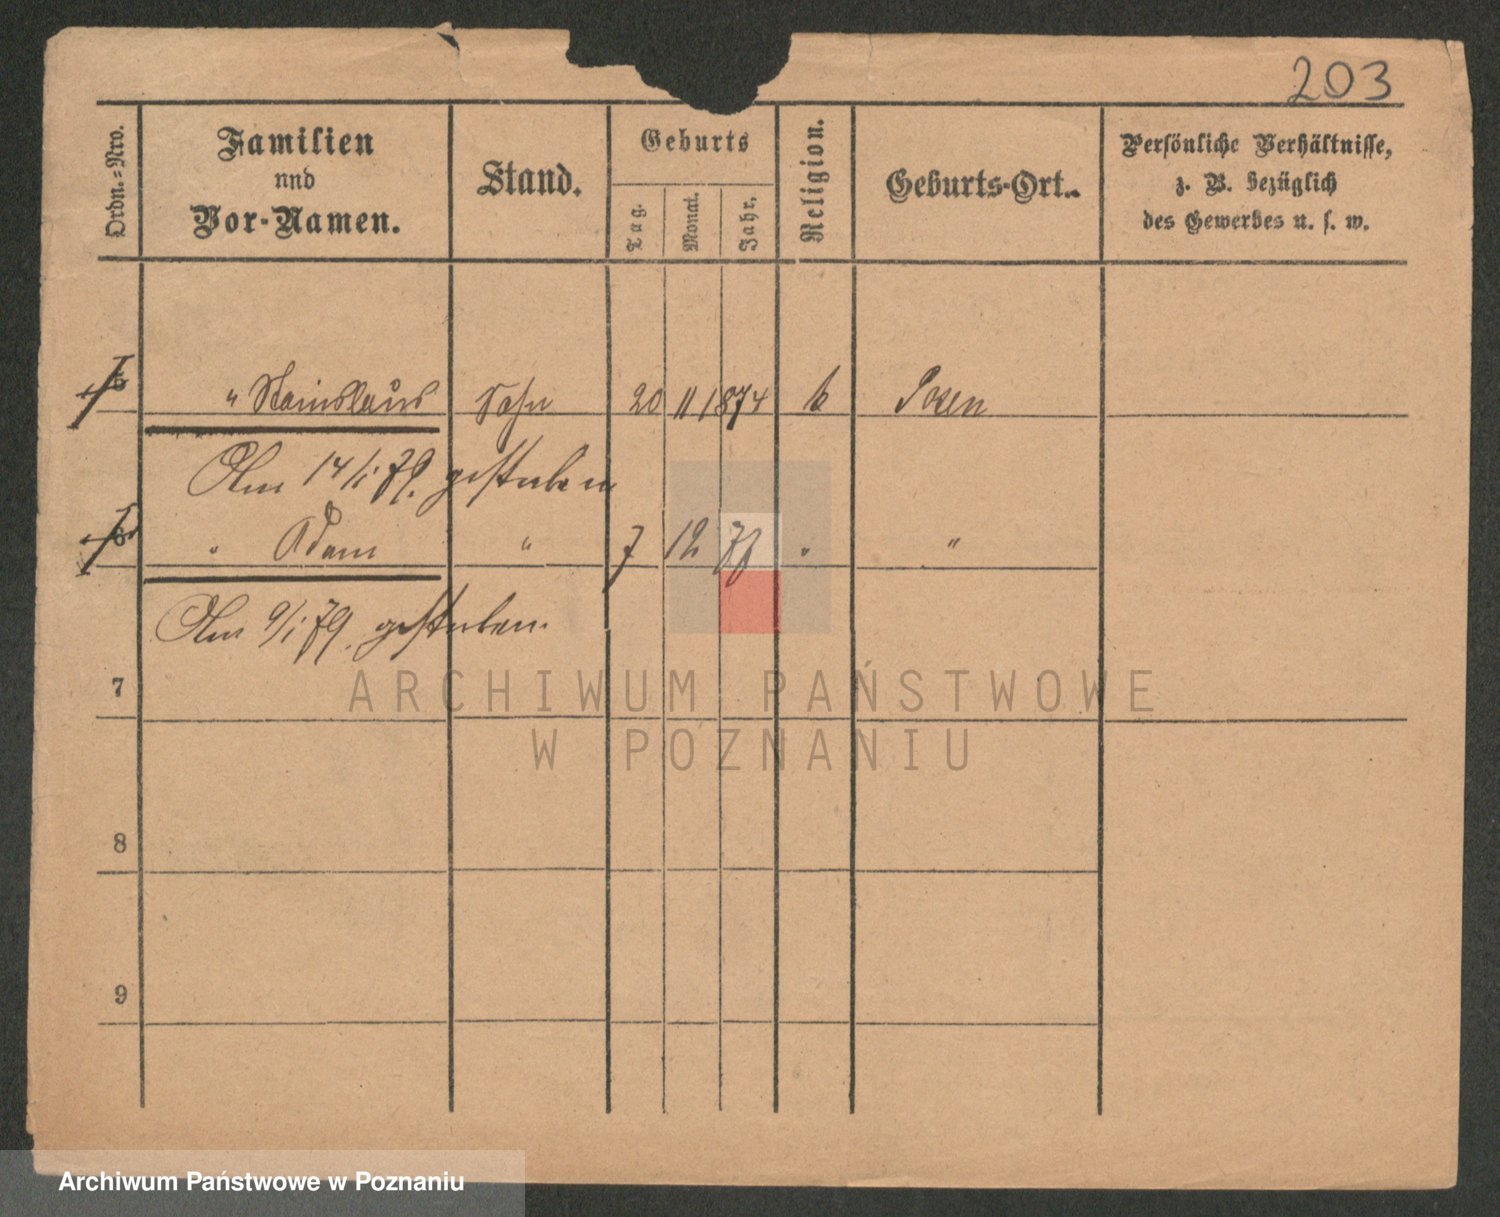 203
Ordn.=Nro.
Familien
nnd
Vor-Namen.
Stand.
Geburts
Tag.
Monat.
Jahr.
Religion.
Geburts-Ort.
Persönliche Verhältnisse,
z. B. bezüglich
des Gewerbes u. s. w.
5 " Stanislaus Sohn 20 11 1874 k Posen
Am 14/1 79. gestorben
6 " Adam " 7 12 77 " "
Am 9/1 79. gestorben.
7
ARCHIWUM PAŃSTWOWE
W POZNANIU
8
9
Archiwum Państwowe w Poznaniu